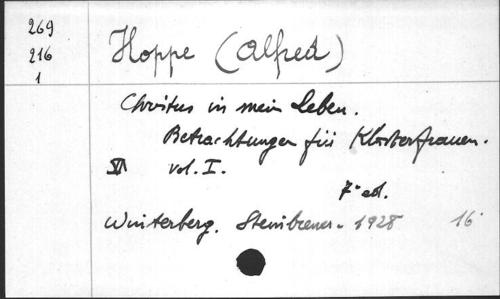 269
216
1
Hoppe (Alfred)
Christus in mein Leben.
Betrachtungen für Klosterfrauen.
VI vol. I.
7ª ed.
Winterberg. Steinbrener - 1928 16º